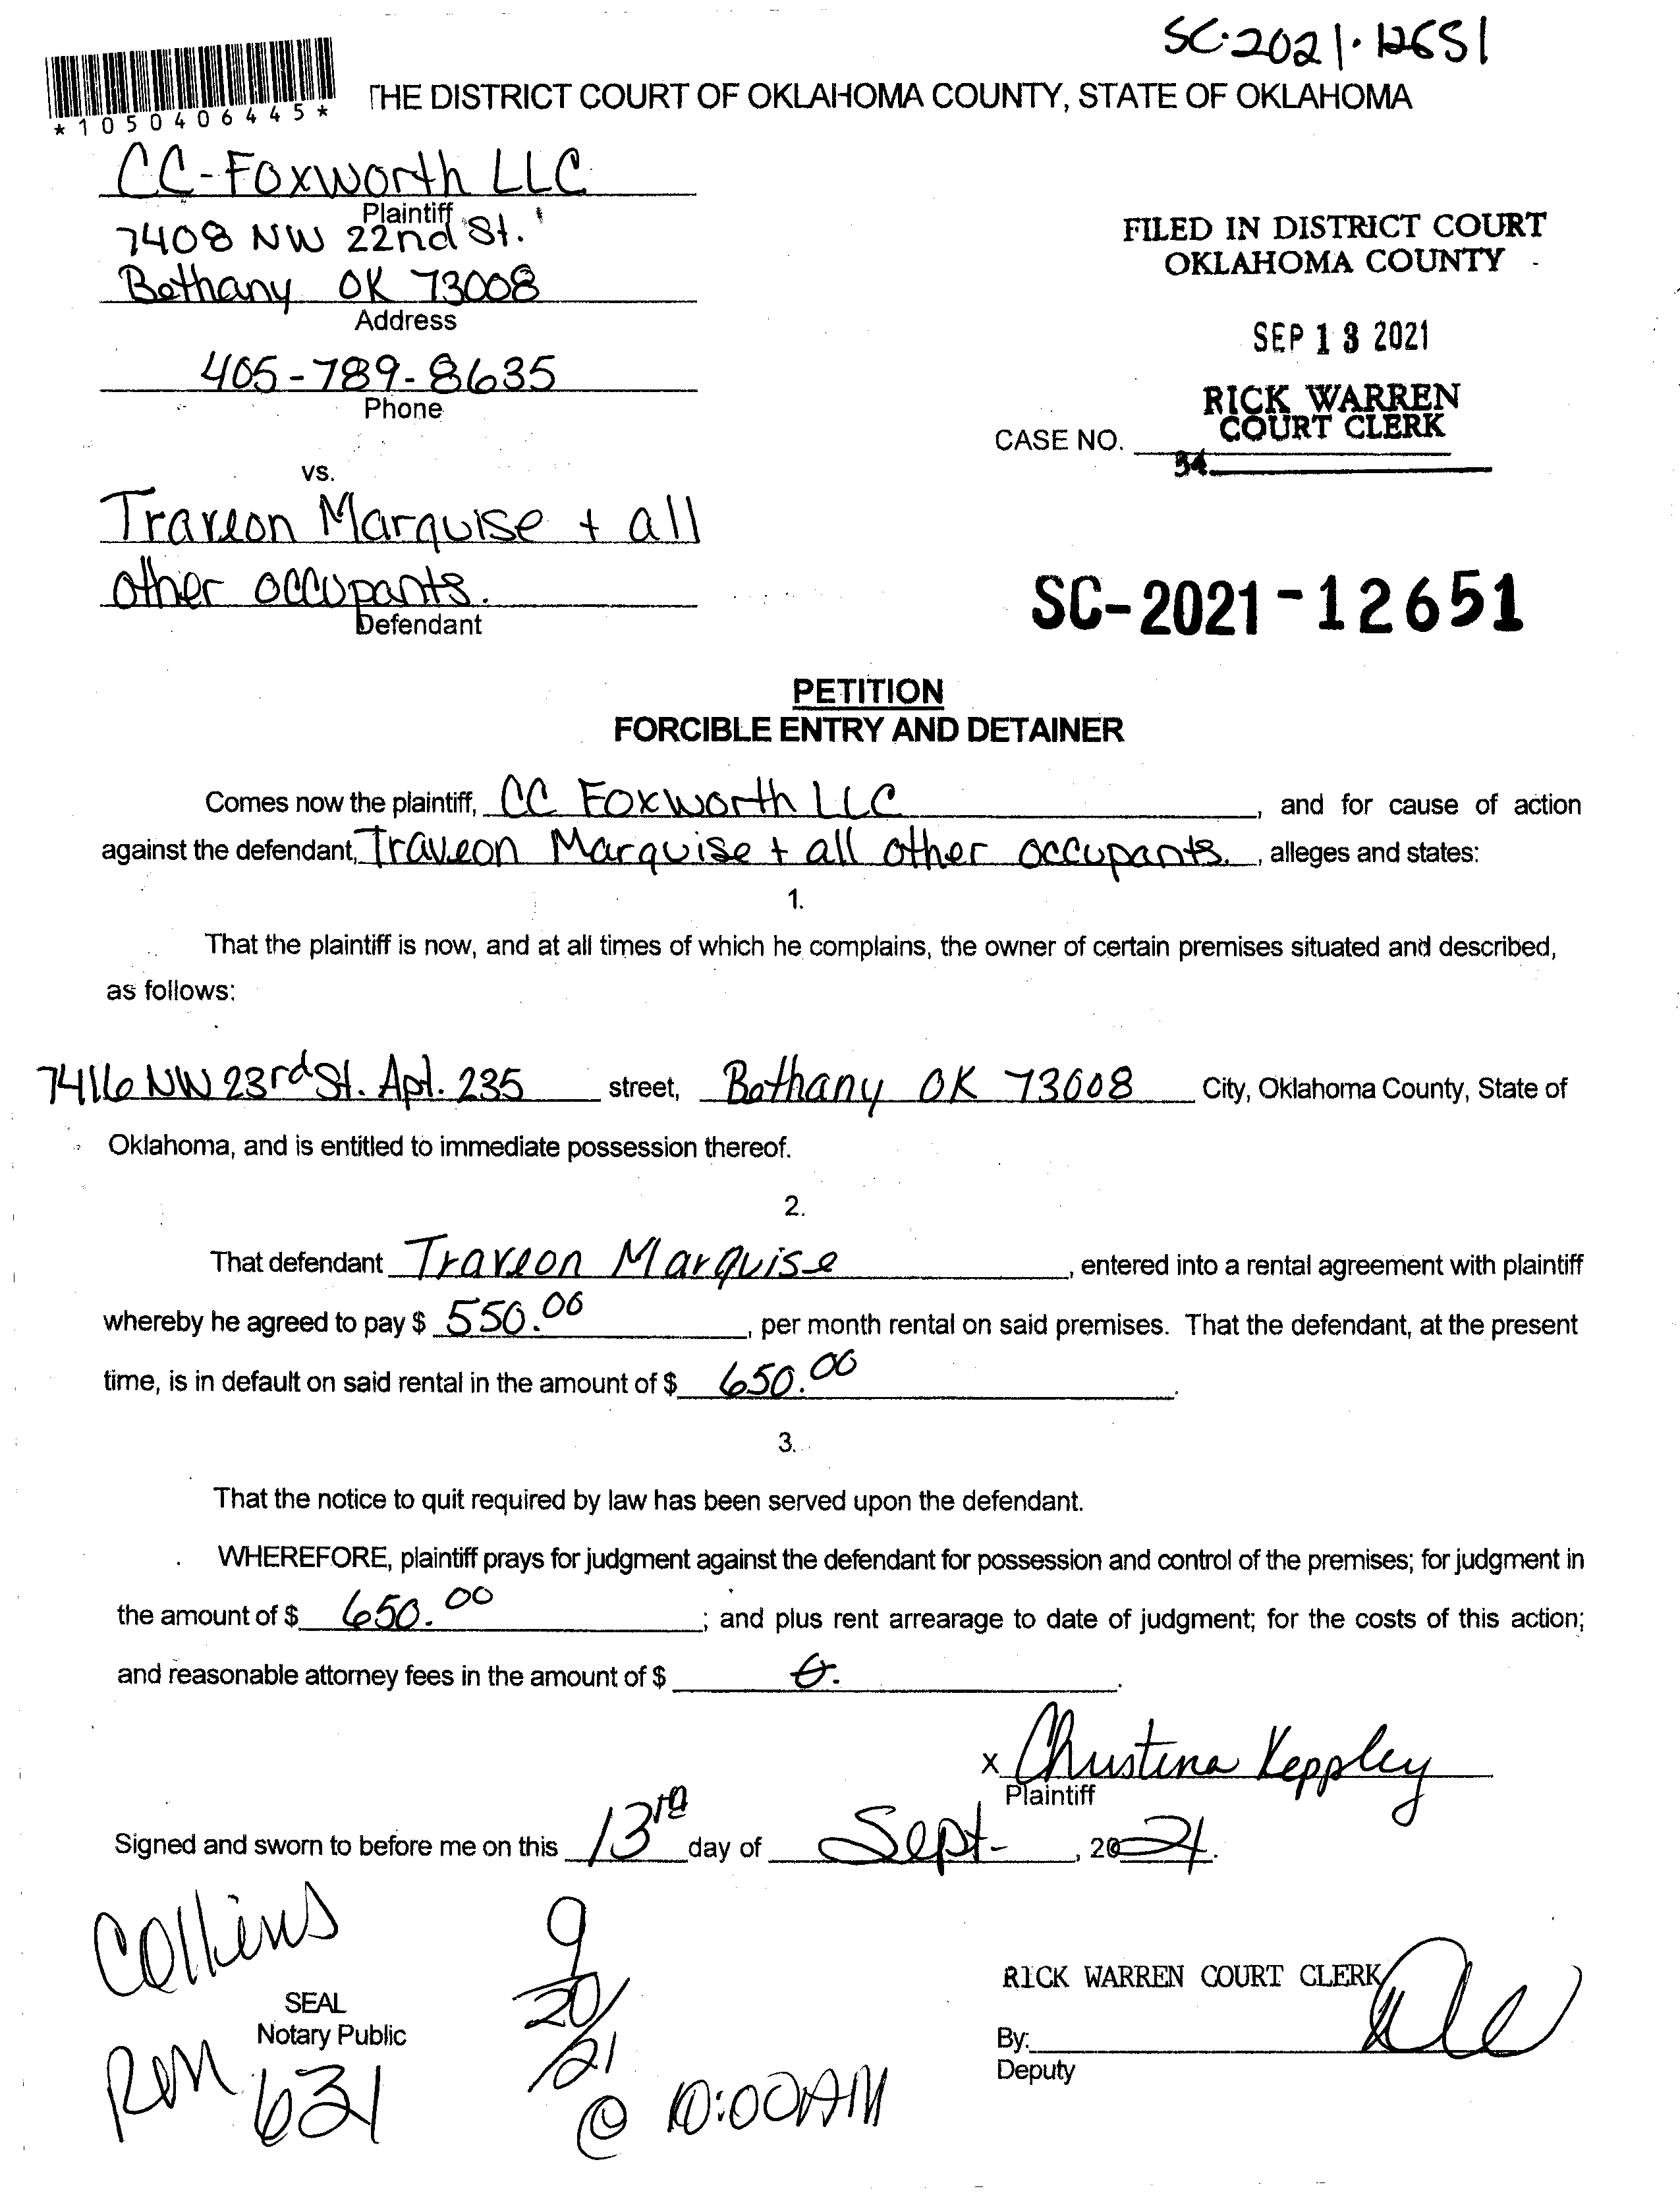 SC-2021-12651
*1050406445*
THE DISTRICT COURT OF OKLAHOMA COUNTY, STATE OF OKLAHOMA
CC-Foxworth LLC
Plaintiff
7408 NW 22nd St.
Bethany OK 73008
Address
405-789-8635
Phone
FILED IN DISTRICT COURT
OKLAHOMA COUNTY
SEP 13 2021
RICK WARREN
COURT CLERK
CASE NO.
34
vs.
Traveon Marquise + all
other occupants.
Defendant
SC-2021-12651
PETITION
FORCIBLE ENTRY AND DETAINER
Comes now the plaintiff, CC Foxworth LLC, and for cause of action
against the defendant, Traveon Marquise + all other occupants., alleges and states:
1.
That the plaintiff is now, and at all times of which he complains, the owner of certain premises situated and described,
as follows:
7416 NW 23rd St. Apt. 235 street, Bethany OK 73008 City, Oklahoma County, State of
Oklahoma, and is entitled to immediate possession thereof.
2.
That defendant Traveon Marquise, entered into a rental agreement with plaintiff
whereby he agreed to pay $ 550.00, per month rental on said premises. That the defendant, at the present
time, is in default on said rental in the amount of $ 650.00.
3.
That the notice to quit required by law has been served upon the defendant.
WHEREFORE, plaintiff prays for judgment against the defendant for possession and control of the premises; for judgment in
the amount of $ 650.00; and plus rent arrearage to date of judgment; for the costs of this action;
and reasonable attorney fees in the amount of $ 0.
x Christina Keppley
Plaintiff
Signed and sworn to before me on this 13th day of Sept-, 2021.
Collins
SEAL
Notary Public
Rm 631
9/20/21
@ 10:00AM
RICK WARREN COURT CLERK
By:
Deputy